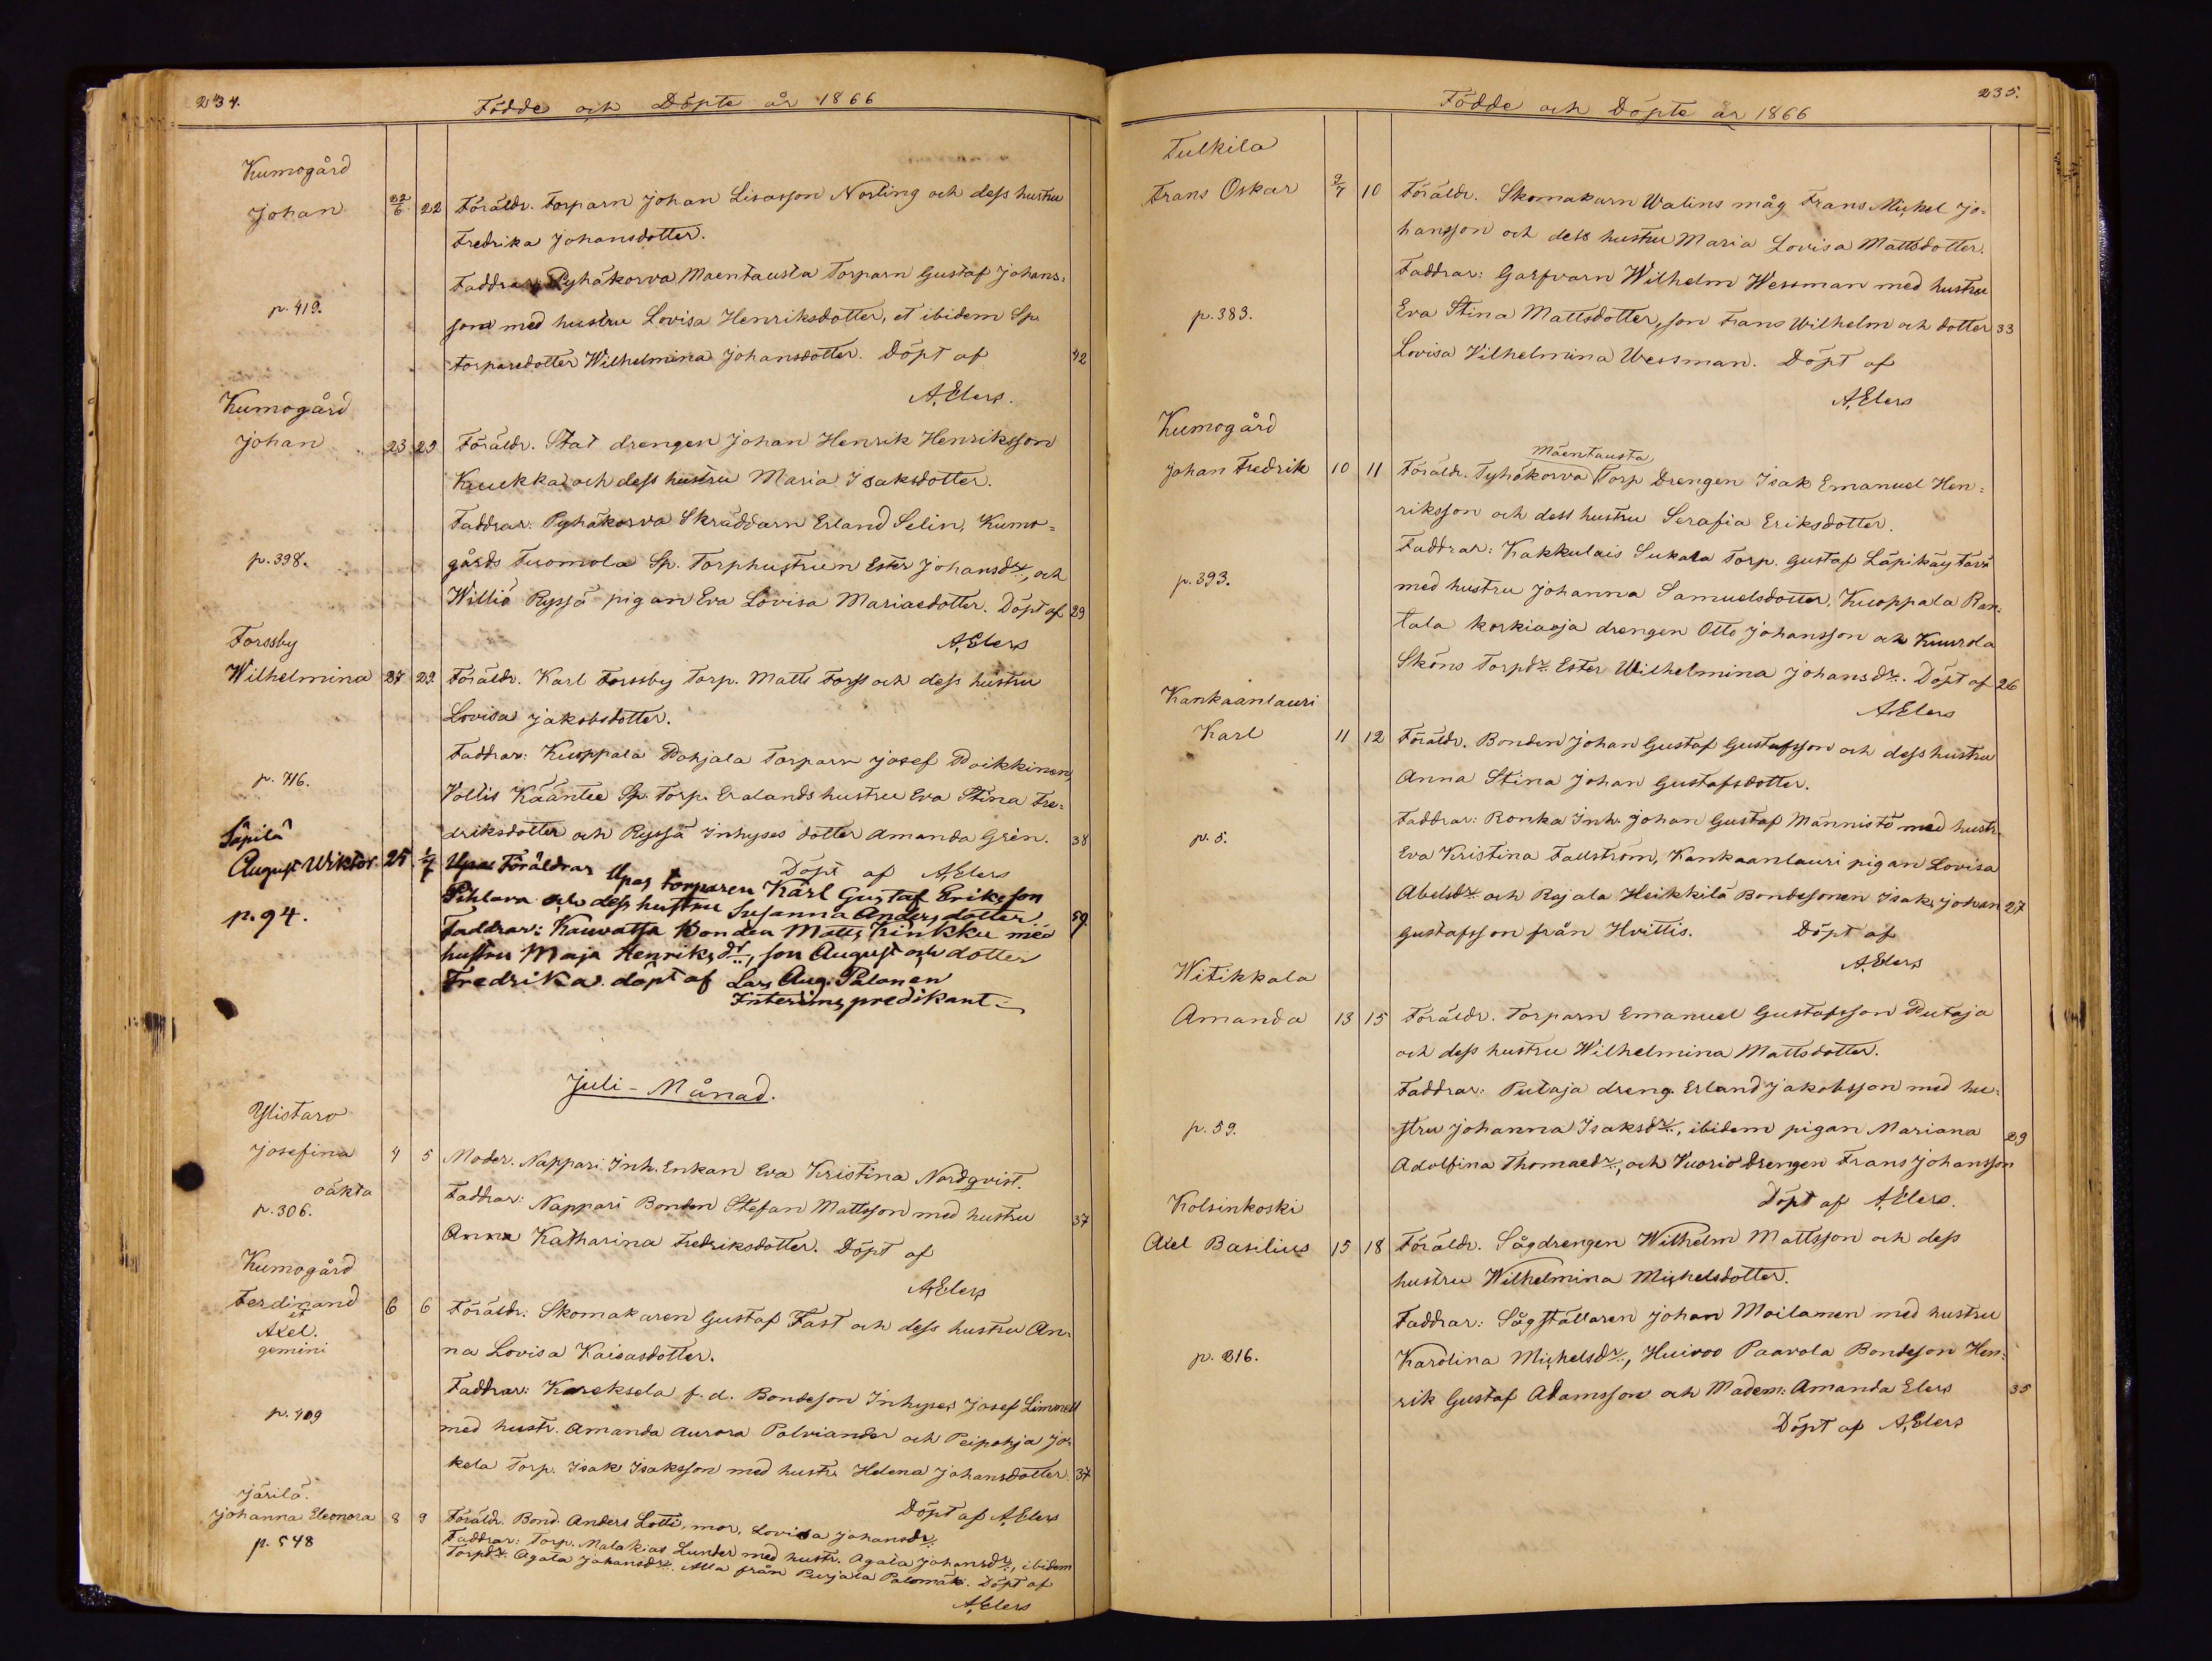 234.
Födde och Döpte år 1866
Kumogård
Johan 22/6 22 Föräldr. Torparn Johan Lisasson Norling och dess hustru
Fredrika Johansdotter.
Faddrar: Pyhäkorva Maentausta Torparn Gustaf Johans=
p. 419. son med hustru Lovisa Henriksdotter, et ibidem Sp.
torparedotter Wilhelmina Johansdotter. Döpt af 42
A, Elers.
Kumogård
Johan 23 29 Föräldr. Stat drengen Johan Henrik Henriksson
Kuukka och dess hustru Maria Isaksdotter.
Faddrar: Pyhäkorva Skräddarn Erland Selin, Kumo=
p. 398. gårds Tuomola Sp. Torphustrun Ester Johansdr, och
Williö Ryssä pigan Eva Lovisa Mariaedotter. Döpt af 29
A, Elers
Forssby
Wilhelmina 27 29 Föräldr. Karl Forssby Torp. Matts Forss och dess hustru
Lovisa Jakobsdotter.
Faddrar: Kuoppala Pohjala Torparn Josef Poikkinen,
p. 716. Voltis Kääntee Sp. Torp. Erlands hustru Eva Stina Fre=
driksdotter och Ryssä Inhyses dotter Amanda Grèn. 38
Döpt af A, Elers
Säpilä
August Wiktor 25 1/7 Upa Föräldrar Upas torparen Karl Gustaf Eriksson
Pihlava och dess hustru Susanna Andersdotter
p. 94. Faddrar: Kauvatsa Bonden Matts Kinkku med 59
hustru Maja Henriksdr, son August och dotter
Fredrika. döpt af Lars Aug. Palonen
Interims predikant.
Juli-Månad.
Ylistaro
Josefina 4 5 Moder. Nappari Inh. Enkan Eva Kristina Nordqvist.
oäkta
Faddrar: Nappari Bonden Stefan Mattsson med hustru 37
p. 306.
Anna Katharina Fredriksdotter. Döpt af
A, Elers
Kumogård
Ferdinand 6 6 Föräldr. Skomakaren Gustaf Fast och dess hustru An=
et
Axel.
gemini
na Lovisa Kaisasdotter.
Faddrar: Kareksela f.d. Bondeson Inhyses Josef Limnell
p. 409 med hustr. Amanda Aurora Polviander och Peipohja Jo=
kela Torp. Isak Isaksson med hustr. Helena Johansdotter. 37
Döpt af A, Elers
Järilä.
Johanna Eleonora 8 9 Föräldr. Bond. Anders Lotti, mor, Lovisa Johansdr.
p. 548 Faddrar: Torp. Malakias Lunder med hustr. Agata Johansdr, ibidem
Torpdr. Agata Johansdr. Alla från Purjala Palomäki. Döpt af
A, Elers
235.
Födde och Döpte år 1866
Tulkila
Frans Oskar 9/7 10 Föräldr. Skomakarn Walins måg Frans Michel Jo=
hansson och dess hustru Maria Lovisa Mattsdotter.
Faddrar: Garfvarn Wilhelm Wessman med hustru
p. 383. Eva Stina Mattsdotter, son Frans Wilhelm och dotter 33
Lovisa Vilhelmina Wessman. Döpt af
A, Elers
Kumogård
Mäentausta
Johan Fredrik 10 11 Föräldr. Pyhäkorva Torp Drengen Isak Emanuel Hen=
riksson och dess hustru Serafia Eriksdotter.
Faddrar: Kakkulais Sukala Torp. Gustaf Läpikäytävä
p. 393. med hustru Johanna Samuelsdotter, Kuoppala Ran=
tala korkiaoja drengen Otto Johansson och Kuurola
Sköns Torpdr. Ester Wilhelmina Johansdr. Döpt af 26
A, Elers
Kankaanlauri
Karl 11 12 Föräldr. Bonden Johan Gustaf Gustafsson och dess hustru
Anna Stina Johan Gustafsdotter.
Faddrar: Ronka Inh. Johan Gustaf Männistö med hustr.
p. 5. Eva Kristina Fallström, Kankaanlauri pigan Lovisa
Abelsdr och Rajala Heikkilä Bondesonen Isak Johan 27
Gustafsson från Hvittis. Döpt af
A, Elers
Witikkala
Amanda 13 15 Föräldr. Torparn Emanuel Gustafsson Putaja
och dess hustru Wilhelmina Mattsdotter.
Faddrar: Putaja dreng. Erland Jakobsson med hu=
p. 59. stru Johanna Isaksdr, ibidem pigan Mariana 29
Adolfina Thomaedr, och Vuorio Drengen Frans Johansson
Döpt af A, Elers.
Kolsinkoski
Axel Basilius 15 18 Föräldr. Sågdrengen Wilhelm Mattsson och dess
hustru Wilhelmina Michelsdotter.
Faddrar: Sågställaren Johan Moilanen med hustru
p. 216. Karolina Michelsdr, Huivoo Paavola Bondeson Hen=
rik Gustaf Adamsson och Madem: Amanda Elers 35
Döpt af A, Elers